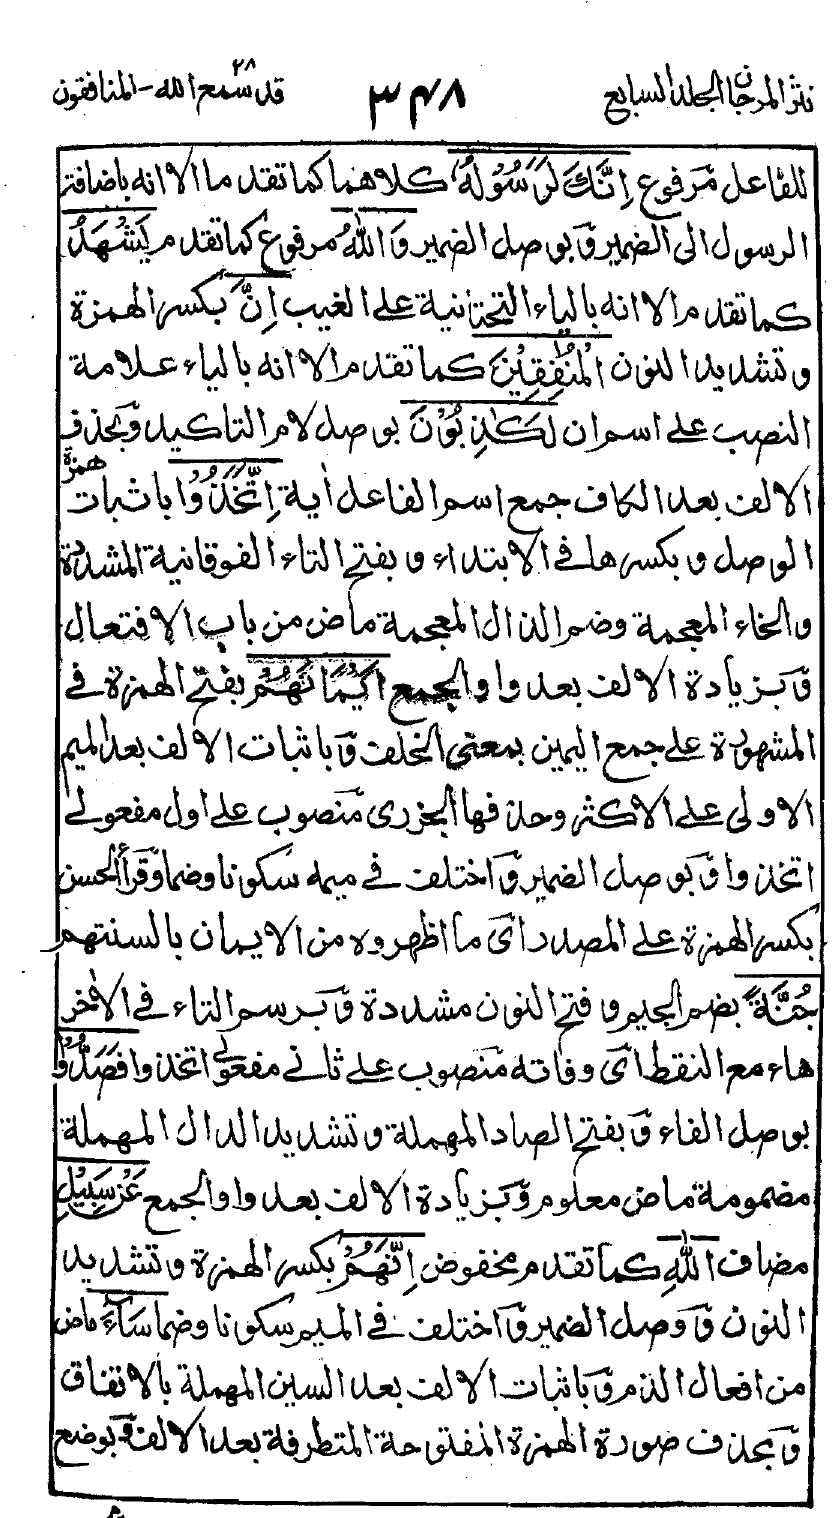 نثر المرجان الجلد السابع ٣٤٨ قد سمع الله ٢٨ - المنافقون
للفاعل مرفوع اِنَّكَ لَرَسُوْلُهٗ كلاهما كما تقدما الا انه باضافة
الرسول الى الضمير وَبوصل الضمير وَاللّٰهُ مرفوع كما تقدم يَشْهَدُ
كما تقدم الا انه بالياء التحتانية على الغيب اِنَّ بكسر الهمزة
وتشديد النون الْمُنٰفِقِيْنَ كما تقدم الا انه بالياء علامة
النصب على اسم ان لَكٰذِبُوْنَ بوصل لام التاكيد وَبحذف
الالف بعد الكاف جمع اسم الفاعل اٰية اِتَّخَذُوْا باثبات همزة
الوصل وبكسرها في الابتداء وبفتح التاء الفوقانية المشددة
والخاء المعجمة وضم الذال المعجمة ماض من باب الافتعال
وَبزيادة الالف بعد واو الجمع اَيْمَانَهُمْ بفتح الهمزة في
المشهورة على جمع اليمين بمعنى الحلف وَباثبات الالف بعد الميم
الاولى على الاكثر وحذفها الجزرى منصوب على اول مفعولي
اتخذوا وَبوصل الضمير وَاختلف في ميمه سكونا وضما وَقرأ الحسن
بكسر الهمزة على المصدر اى ما اظهروه من الايمان بالسنتهم
جُنَّةً بضم الجيم وفتح النون مشددة وَبرسم التاء في الاٰخر
هاء مع النقط اى وقاته منصوب على ثاني مفعولي اتخذوا فَصَدُّوْا
بوصل الفاء وَبفتح الصاد المهملة وتشديد الدال المهملة
مضمومة ماض معلوم وَبزيادة الالف بعد واو الجمع عَنْ سَبِيْلِ
مضاف اللّٰهِ كما تقدم مخفوض اِنَّهُمْ بكسر الهمزة وتشديد
النون وَوصل الضمير وَاختلف في الميم سكونا وضما سَآءَ ماض
من افعال الذم وَباثبات الالف بعد السين المهملة بالاتفاق
وَبحذف صورة الهمزة المفتوحة المتطرفة بعد الالف وَبوضع